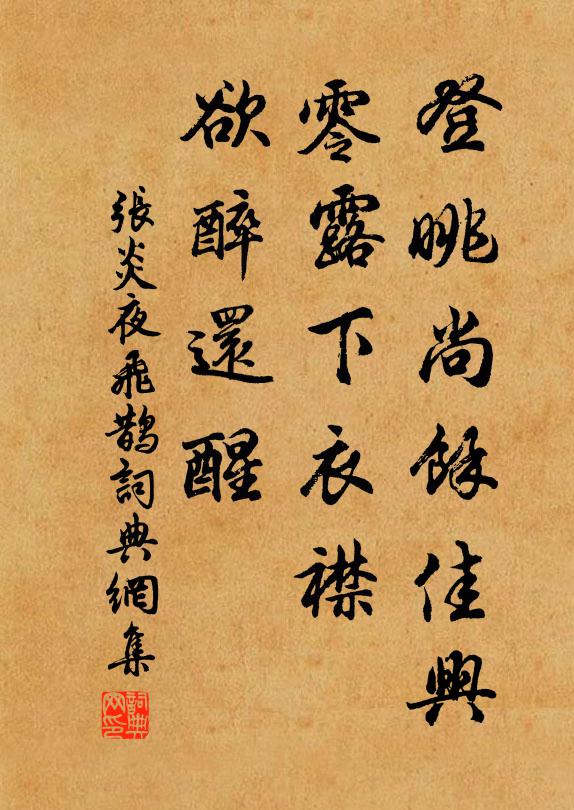 登眺尚餘佳興
零露下衣襟
欲醉還醒
張炎夜飛鵲詞典網集
詞典网印